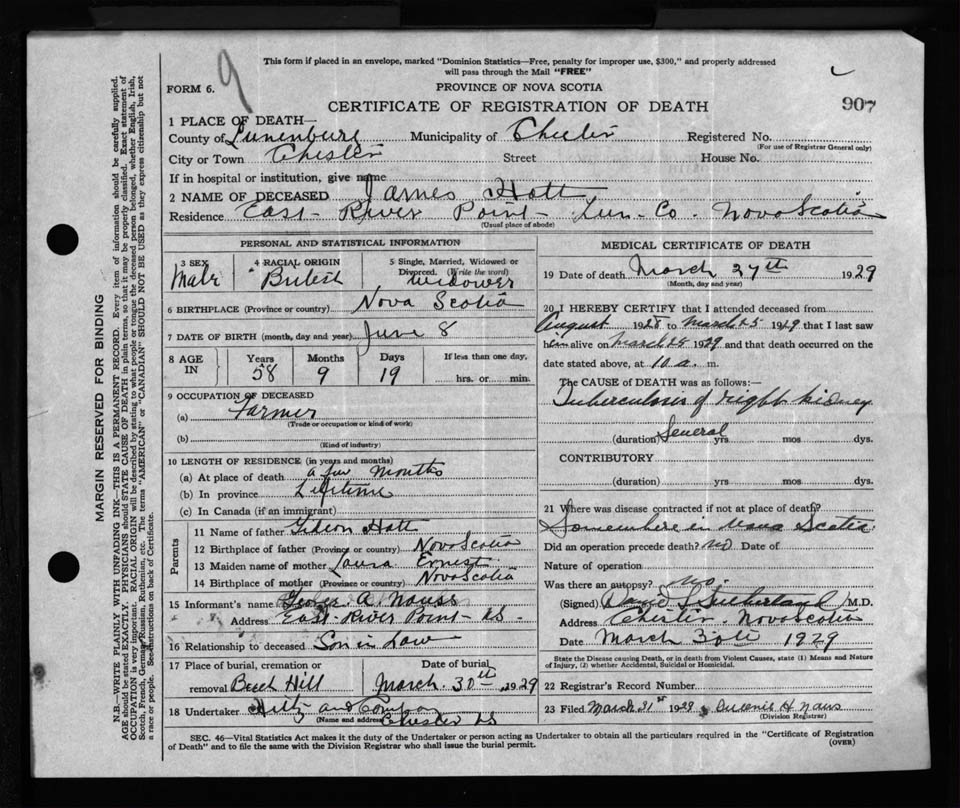 9
This form if placed in an envelope, marked "Dominion Statistics—Free, penalty for improper use, $300," and properly addressed
will pass through the Mail "FREE"
FORM 6.
PROVINCE OF NOVA SCOTIA
907
CERTIFICATE OF REGISTRATION OF DEATH
1 PLACE OF DEATH—
County of Lunenburg Municipality of Chester Registered No.
(For use of Registrar General only)
City or Town Chester Street House No.
If in hospital or institution, give name
2 NAME OF DECEASED James Hatt
Residence East River Point Lun. Co. Nova Scotia
(Usual place of abode)
PERSONAL AND STATISTICAL INFORMATION
3 SEX Male
4 RACIAL ORIGIN British
5 Single, Married, Widowed or
Divorced. (Write the word)
Widower
6 BIRTHPLACE (Province or country) Nova Scotia
7 DATE OF BIRTH (month, day and year) June 8
8 AGE IN Years Months Days If less than one day,
58 9 19 hrs. or min.
9 OCCUPATION OF DECEASED
(a) Farmer
(Trade or occupation or kind of work)
(b)
(Kind of industry)
10 LENGTH OF RESIDENCE (in years and months)
(a) At place of death a few months
(b) In province Lifetime
(c) In Canada (if an immigrant)
Parents
11 Name of father Gideon Hatt
12 Birthplace of father (Province or country) Nova Scotia
13 Maiden name of mother Laura Ernest
14 Birthplace of mother (Province or country) Nova Scotia
15 Informant's name A. Nauss
Address East River Point N.S.
16 Relationship to deceased Son in Law
17 Place of burial, cremation or
removal Beech Hill
Date of burial
March 30th 1929
18 Undertaker and Company
(Name and address) Chester N.S.
MEDICAL CERTIFICATE OF DEATH
19 Date of death March 27th 1929
(Month, day and year)
20 I HEREBY CERTIFY that I attended deceased from
August 1928 to March 25 1929 that I last saw
him alive on March 25 1929 and that death occurred on the
date stated above, at 10 a. m.
The CAUSE OF DEATH was as follows:—
Tuberculosis of right kidney
(duration) Several yrs mos dys.
CONTRIBUTORY
(duration) yrs mos dys.
21 Where was disease contracted if not at place of death?
Somewhere in Nova Scotia.
Did an operation precede death? no Date of
Nature of operation
Was there an autopsy? no.
(Signed) David Sutherland M.D.
Address Chester. Nova Scotia
Date March 30th 1929
State the Disease causing Death, or in death from Violent Causes, state (1) Means and Nature
of Injury, (2) whether Accidental, Suicidal or Homicidal.
22 Registrar's Record Number
23 Filed March 31st 1929 H Naus
(Division Registrar)
SEC. 46—Vital Statistics Act makes it the duty of the Undertaker or person acting as Undertaker to obtain all the particulars required in the "Certificate of Registration
of Death" and to file the same with the Division Registrar who shall issue the burial permit.
(OVER)
MARGIN RESERVED FOR BINDING
N.B.—WRITE PLAINLY WITH UNFADING INK—THIS IS A PERMANENT RECORD. Every item of information should be carefully supplied.
AGE should be stated EXACTLY. PHYSICIANS should STATE CAUSE OF DEATH in plain terms, so that it may be properly classified. Exact statement of
OCCUPATION is very important. RACIAL ORIGIN will be described by stating to what people or tongue the deceased person belonged, whether English, Irish,
Scotch, French, German, Russian, Ruthenian, etc. The terms "AMERICAN" or "CANADIAN" SHOULD NOT BE USED as they express citizenship but not
a race or people. See instructions on back of Certificate.